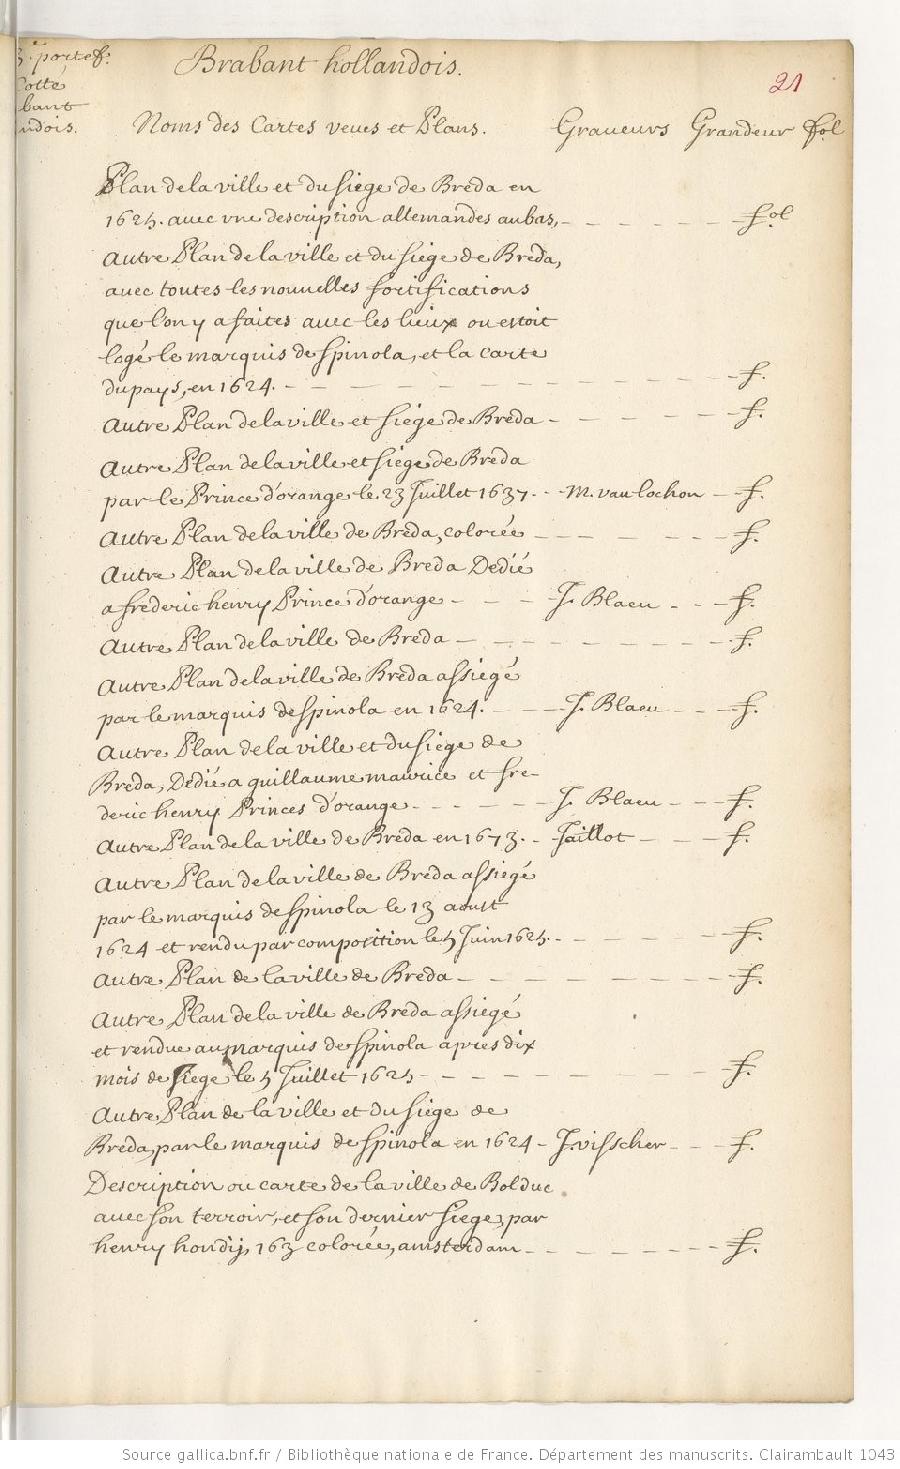 3. portef.
Cotté
bant
ndois.
Brabant hollandois.
21
Noms des Cartes veues et Plans. Graveurs Grandeur fol
Plan de la ville et du siege de Breda en
1625. avec vne description allemandes au bas, - - - - - fol.
Autre Plan de la ville et du siege de Breda,
avec toutes les nouvelles fortifications
que l'on y a faites avec les lieux ou estoit
logé le marquis de Spinola, et la carte
du pays, en 1624. - - - - - - - - - - f.
Autre Plan de la ville et siege de Breda - - - - - - f.
Autre Plan de la ville et siege de Breda
par le Prince d'orange le 23 Juillet 1637. - - M. van lochon - f.
Autre Plan de la ville de Breda, colorée - - - - - - f.
Autre Plan de la ville de Breda Dedié
a frederic henry Prince d'orange - - - J. Blaeu - - - f.
Autre Plan de la ville de Breda - - - - - - - - f.
Autre Plan de la ville de Breda assiegé
par le marquis de Spinola en 1624. - - - J. Blaeu - - - f.
Autre Plan de la ville et du siege de
Breda, Dedié a guillaume maurice et fre-
deric henry Princes d'orange - - - - - J. Blaeu - - - f.
Autre Plan de la ville de Breda en 1673. - Jaillot - - - f.
Autre Plan de la ville de Breda assiegé
par le marquis de Spinola le 13 aoust
1624 et rendu par composition le 5 Juin 1625. - - - - - f.
Autre Plan de la ville de Breda - - - - - - - f.
Autre Plan de la ville de Breda assiegé
et rendue au marquis de Spinola apres dix
mois de siege le 5 Juillet 1625 - - - - - - - f.
Autre Plan de la ville et du siege de
Breda, par le marquis de Spinola en 1624 - J. visscher - - - f.
Description ou carte de la ville de Bolduc
avec son terroir, et son dernier siege, par
henry hondij, 163 colorée, amsterdam - - - - - - - f.
Source gallica.bnf.fr / Bibliothèque nationale de France. Département des manuscrits. Clairambault 1043